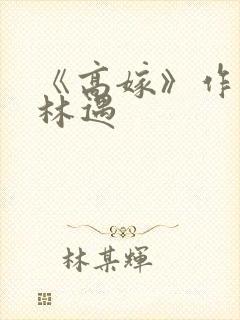 《高嫁》作
林遇
林某輝